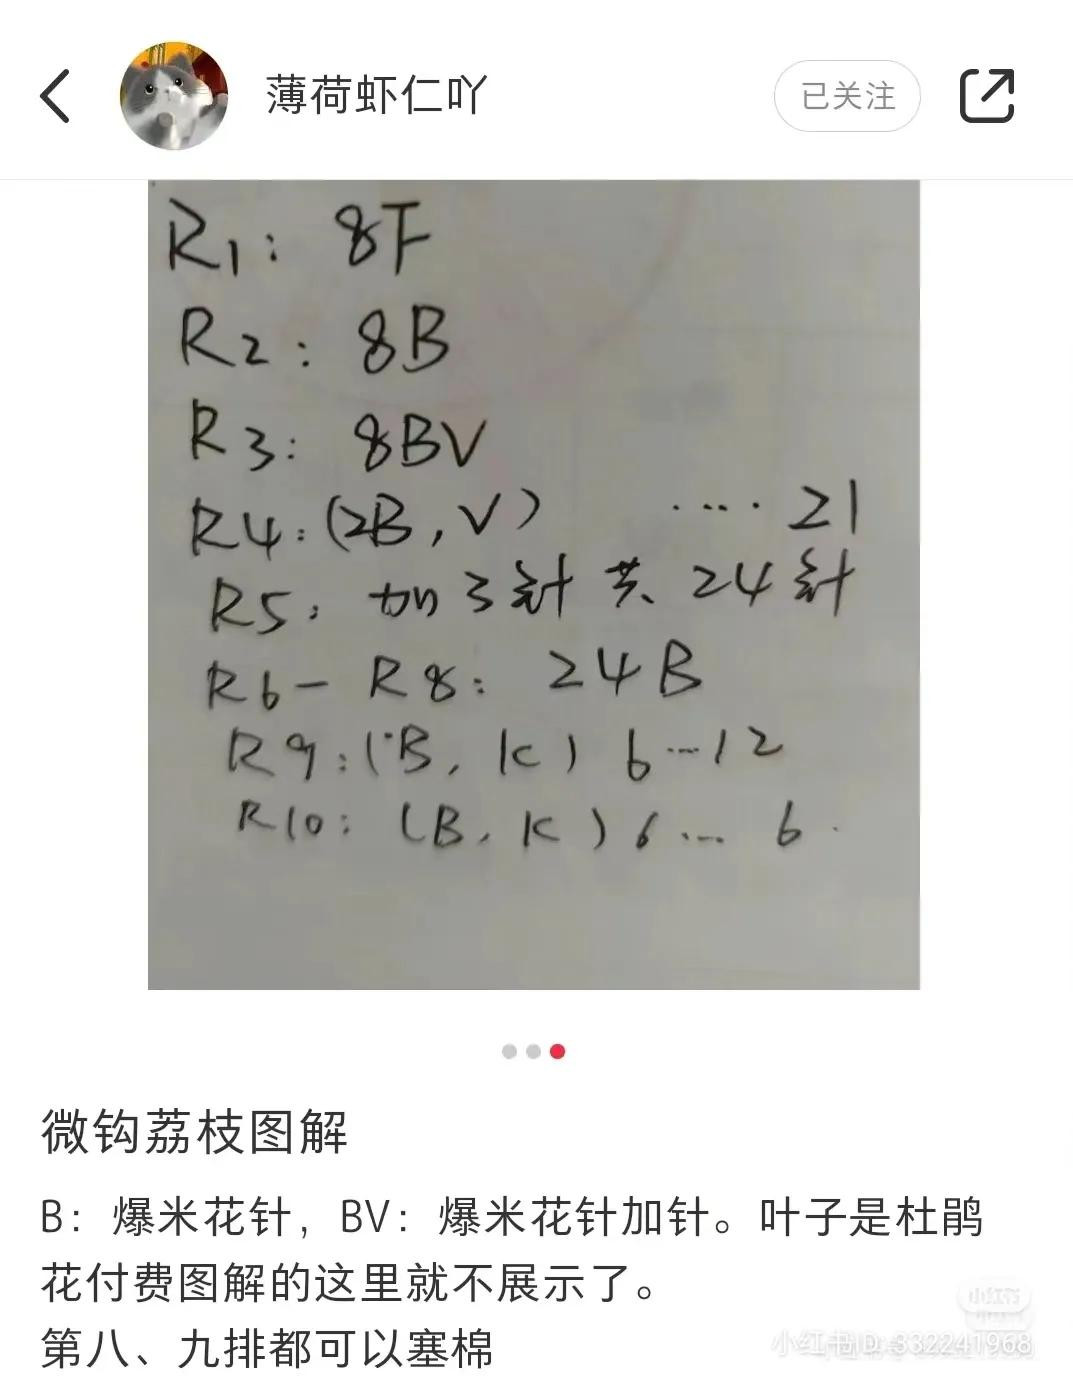 薄荷虾仁吖
已关注
R1: 8F
R2: 8B
R3: 8BV
R4: (2B, V) .... 21
R5: 加3针 共 24针
R6-R8: 24B
R9: (B, K) 6...12
R10: (B, K) 6... 6.
微钩荔枝图解
B：爆米花针，BV：爆米花针加针。叶子是杜鹃
花付费图解的这里就不展示了。
第八、九排都可以塞棉
小红书
小红书ID: 332241968